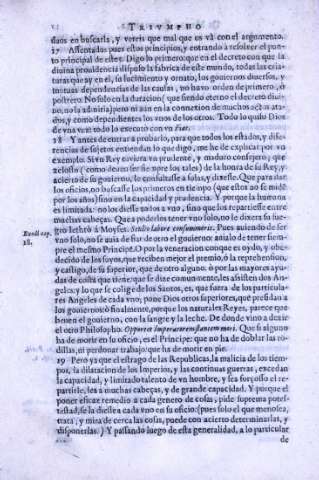 TRIVMPHO
daos en buscarla, y vereis que mal que os và con el argumento.
17 Assentados pues estos principios, y entrando à resolver el pun-
to principal de este. Digo lo primero: que en el decreto con que la
divina providencia dispuso la fabrica de este mundo, todas las criatu-
ras que ay en el, su lucimiento y ornato, los goviernos diversos, y
mutuas dependencias de las causas, no havo orden de primero, ò
postrero. No solo en la duracion (que siendo eterno el decreto divi-
no, no la admitia) pero ni aun en la connection de muchos acta
dos, y como dependientes los vnos de los otros. Todo lo quiso Dios
de vna vez: todo lo executò con vn Fiat.
18 Y antes de entrar a probarlo, para que todos los estados, y dife-
rencias de sujetos entiendan lo que digo, me he de explicar por vn
exemplo. Si vn Rey cviera va prudente, y maduro consejero; que
zeloso (como deven ser siempre los tales) de la honra de su Rey, y
acierto de su govierno, le consultasse a solas, y dixesse. Que para dar
los oficios, no buscasse los primeros en tiempo (que essos no se midē
por los años) sino en la capacidad y prudencia. Y porque la humana
es limitada: no los diesse todos a vno, sino que los repartiesse entre
muchas cabeças. Que a poderlos tener vno solo, no le dixera su sue-
gro Iethrò à Moyses. Stulto labore consumeris. Pues aviendo de ser
vno solo, no se avia de fiar de otro el govierno: avialo de tener siem-
pre el mesmo Principe. O por la veneracion conque es oydo, y obe-
decido de los suyos, que reciben mejor el premio, ò la reprehension,
y castigo, de su superior, que de otro alguno, ò por las mayores ayu-
das de costa que tiene: que se dize comunmente, les assisten dos An-
geles: y lo que se colige de los Santos, es, que fuera de los particula-
res Angeles de cada vno; pone Dios otros superiores, que presidan a
los goviernos: ò finalmente, porque los naturales Reyes, parece que
benen el govierno, con la sangre y la leche. De donde vino a dezir
el otro Philosopho. Opportet imperatorem stantem mori. Que si alguno
ha de morir en lu oficio, es el Principe: que no ha de doblar las ro-
dillas, ni perdonar trabajo: que ha de morir en pie.
19 Pero ya que el estrago de las Republicas, la malicia de los tiem-
pos, la dilatacion de los Imperios, y las continuas guerras, excedan
la capacidad, y limitado talento de vn hombre, y sea forçoso el re-
partirle, sea à muchas cabeças, y de grande capacidad. Y porque el
poner eficaz remedio a cada genero de cosas, pide suprema potes-
tad, se la diesse a cada vno en su oficio: (pues solo el que menosea,
trata, y mira de cerca las cosas, puede con acierto determinarlas, y
disponerlas.) Y passando luego de esta generalidad, a lo particular
de
Exodi cap.
18.